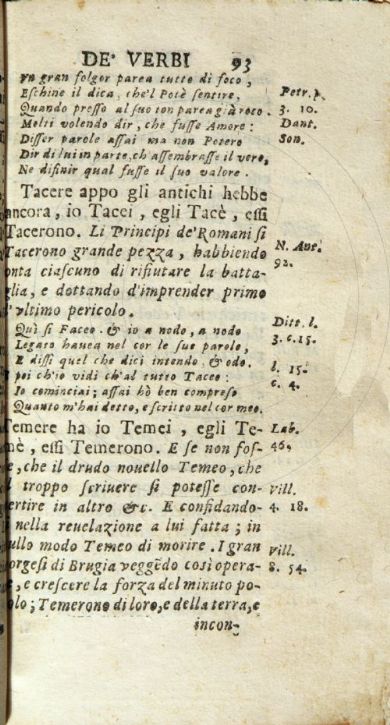 DE' VERBI 93
vn gran folgor parea tutto di foco,
Eschine il dica, che'l Potè sentire, Petr. p.
Quando presso al suo ton parea già roco. 3. 10.
Molti volendo dir, che fusse Amore: Dant.
Disser parole assai ma non Potero Son.
Dir di lui in parte, ch'assembrasse il vero,
Ne difinir qual fusse il suo valore.
Tacere appo gli antichi hebbe
ancora, io Tacei, egli Tacè, essi
Tacerono. Li Principi de'Romani si
Tacerono grande pezza, habbiendo N. Ant.
onta ciascuno di rifiutare la batta- 92.
glia, e dottando d'imprender primo
l'vltimo pericolo.
Quì si Faceo. & io a nodo, a nodo Ditt. l.
Legato hauea nel cor le sue parole, 3. c. 15.
E dissi quel che dici intendo, & odo.
poi ch'io vidi ch'al tutto Taceo: l. 15.
Io cominciai; assai hò ben compreso c. 4.
Quanto m'hai detto, e scritto nel cor meo.
Temere ha io Temei, egli Te- Lab.
mè, essi Temerono. E se non fos- 46.
se, che il drudo nouello Temeo, che
il troppo scriuere si potesse con- vill.
uertire in altro &c. E confidando- 4. 18.
si nella reuelazione a lui fatta; in
nullo modo Temeo di morire. I gran vill.
borgesi di Brugia veggēdo così opera- 8. 54.
re, e crescere la forza del minuto po-
polo; Temerono di loro, e della terra, e
incon-